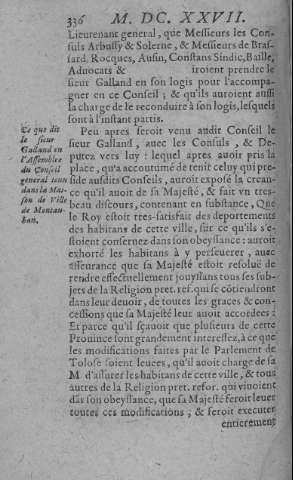 336 M. DC. XXVII.
Lieutenant general, que Messieurs les Con-
suls Arbussy & Solerne, & Messieurs de Bras-
sard, Rocques, Ausin, Constans Sindic, Baille,
Advocats & iroient prendre le
sieur Galland en son logis pour l'accompa-
gner en ce Conseil ; & qu'ils auroient aussi
la charge de le reconduire à son logis, lesquels
sont à l'instant partis.
Peu apres seroit venu audit Conseil le
sieur Galland, avec les Consuls, & De-
putez vers luy : lequel apres auoir pris la
place, qu'a accoutumé de tenir celuy qui pre-
side ausdits Conseils, auroit exposé la crean-
ce qu'il auoit de sa Majesté, & fait vn tres-
beau discours, contenant en substance, Que
le Roy estoit tres-satisfait des deportements
des habitans de cette ville, sur ce qu'ils s'e-
stoient conseruez dans son obeyssance : auroit
exhorté les habitans à y perseuerer, auec
asseurance que sa Majesté estoit resoluë de
rendre effectuellement jouyssans tous les sub-
jets de la Religion pret. ref. qui se côtiendront
dans leur deuoir, de toutes les graces & con-
cessions que sa Majesté leur auoit accordees :
Et parce qu'il sçauoit que plusieurs de cette
Prouince sont grandement interessez, à ce que
les modifications faites par le Parlement de
Tolose soient leuees, qu'il auoit charge de sa
M. d'asseurer les habitans de cette ville, & tous
autres de la Religion pret. refor. qui viuoient
dās son obeyssance, que sa Majesté feroit leuer
toutes ces modifications ; & feroit executer
entierement
Ce que dit
le sieur
Galland en
l'Assemblee
du Conseil
general tenu
dans la Mai-
son de Ville
de Montau-
ban.